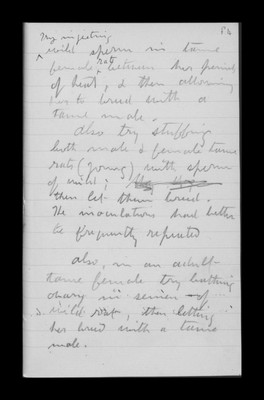 Try injecting
wild sperm in tame
female rats between her period
of heat, & then allowing
her to breed with a
tame male.
Also try stuffing
both male & female tame
rats (young) with sperm
of wild;
then let them breed.
The inoculations had better
be frequently repeated
Also, in an adult
tame female try bathing
ovary in semen of
a wild rat, then letting
her breed with a tame
male.